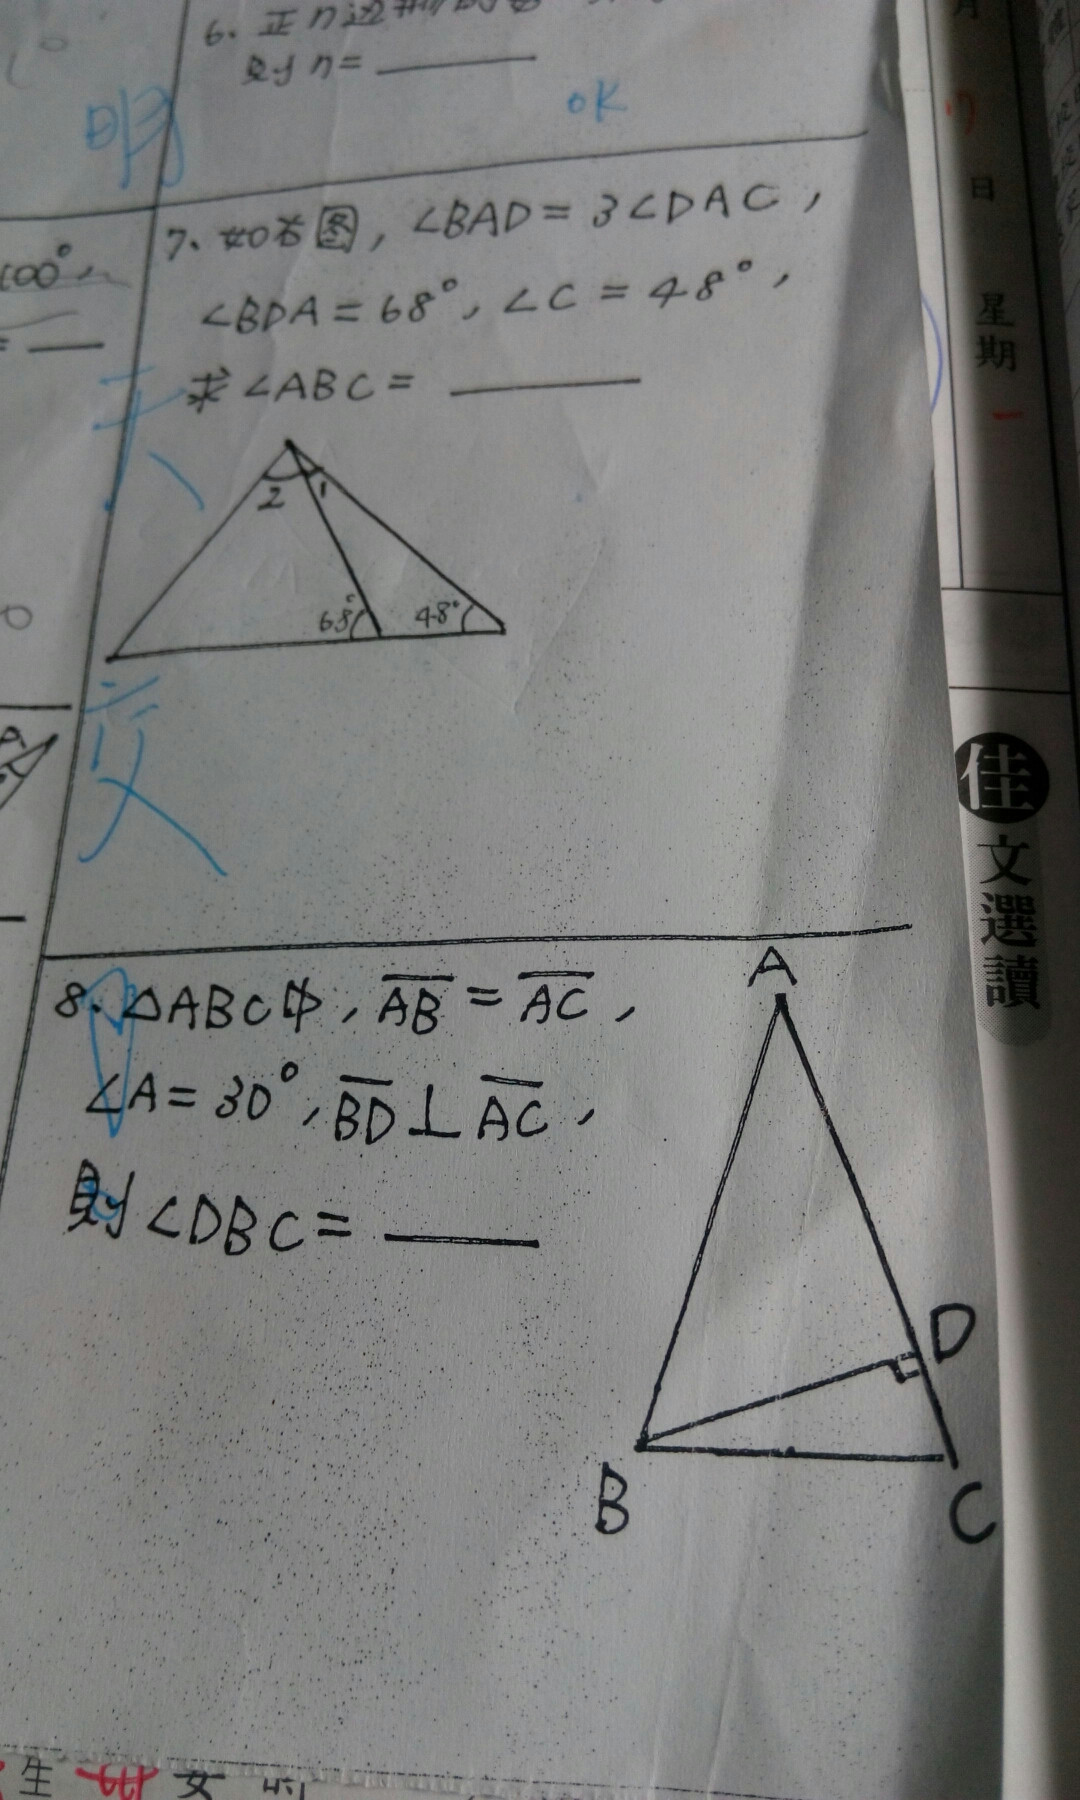 6、正n边形
則n=
明
OK
7、如右图,∠BAD=3∠DAC,
∠BDA=68°,∠C=48°,
求∠ABC=
100°,
=
2
1
68°
48°
交
8、△ABC中,AB=AC,
∠A=30°,BD⊥AC,
則∠DBC=
A
D
B
C
月
17
日
星
期
一
佳
文
選
讀
生
女